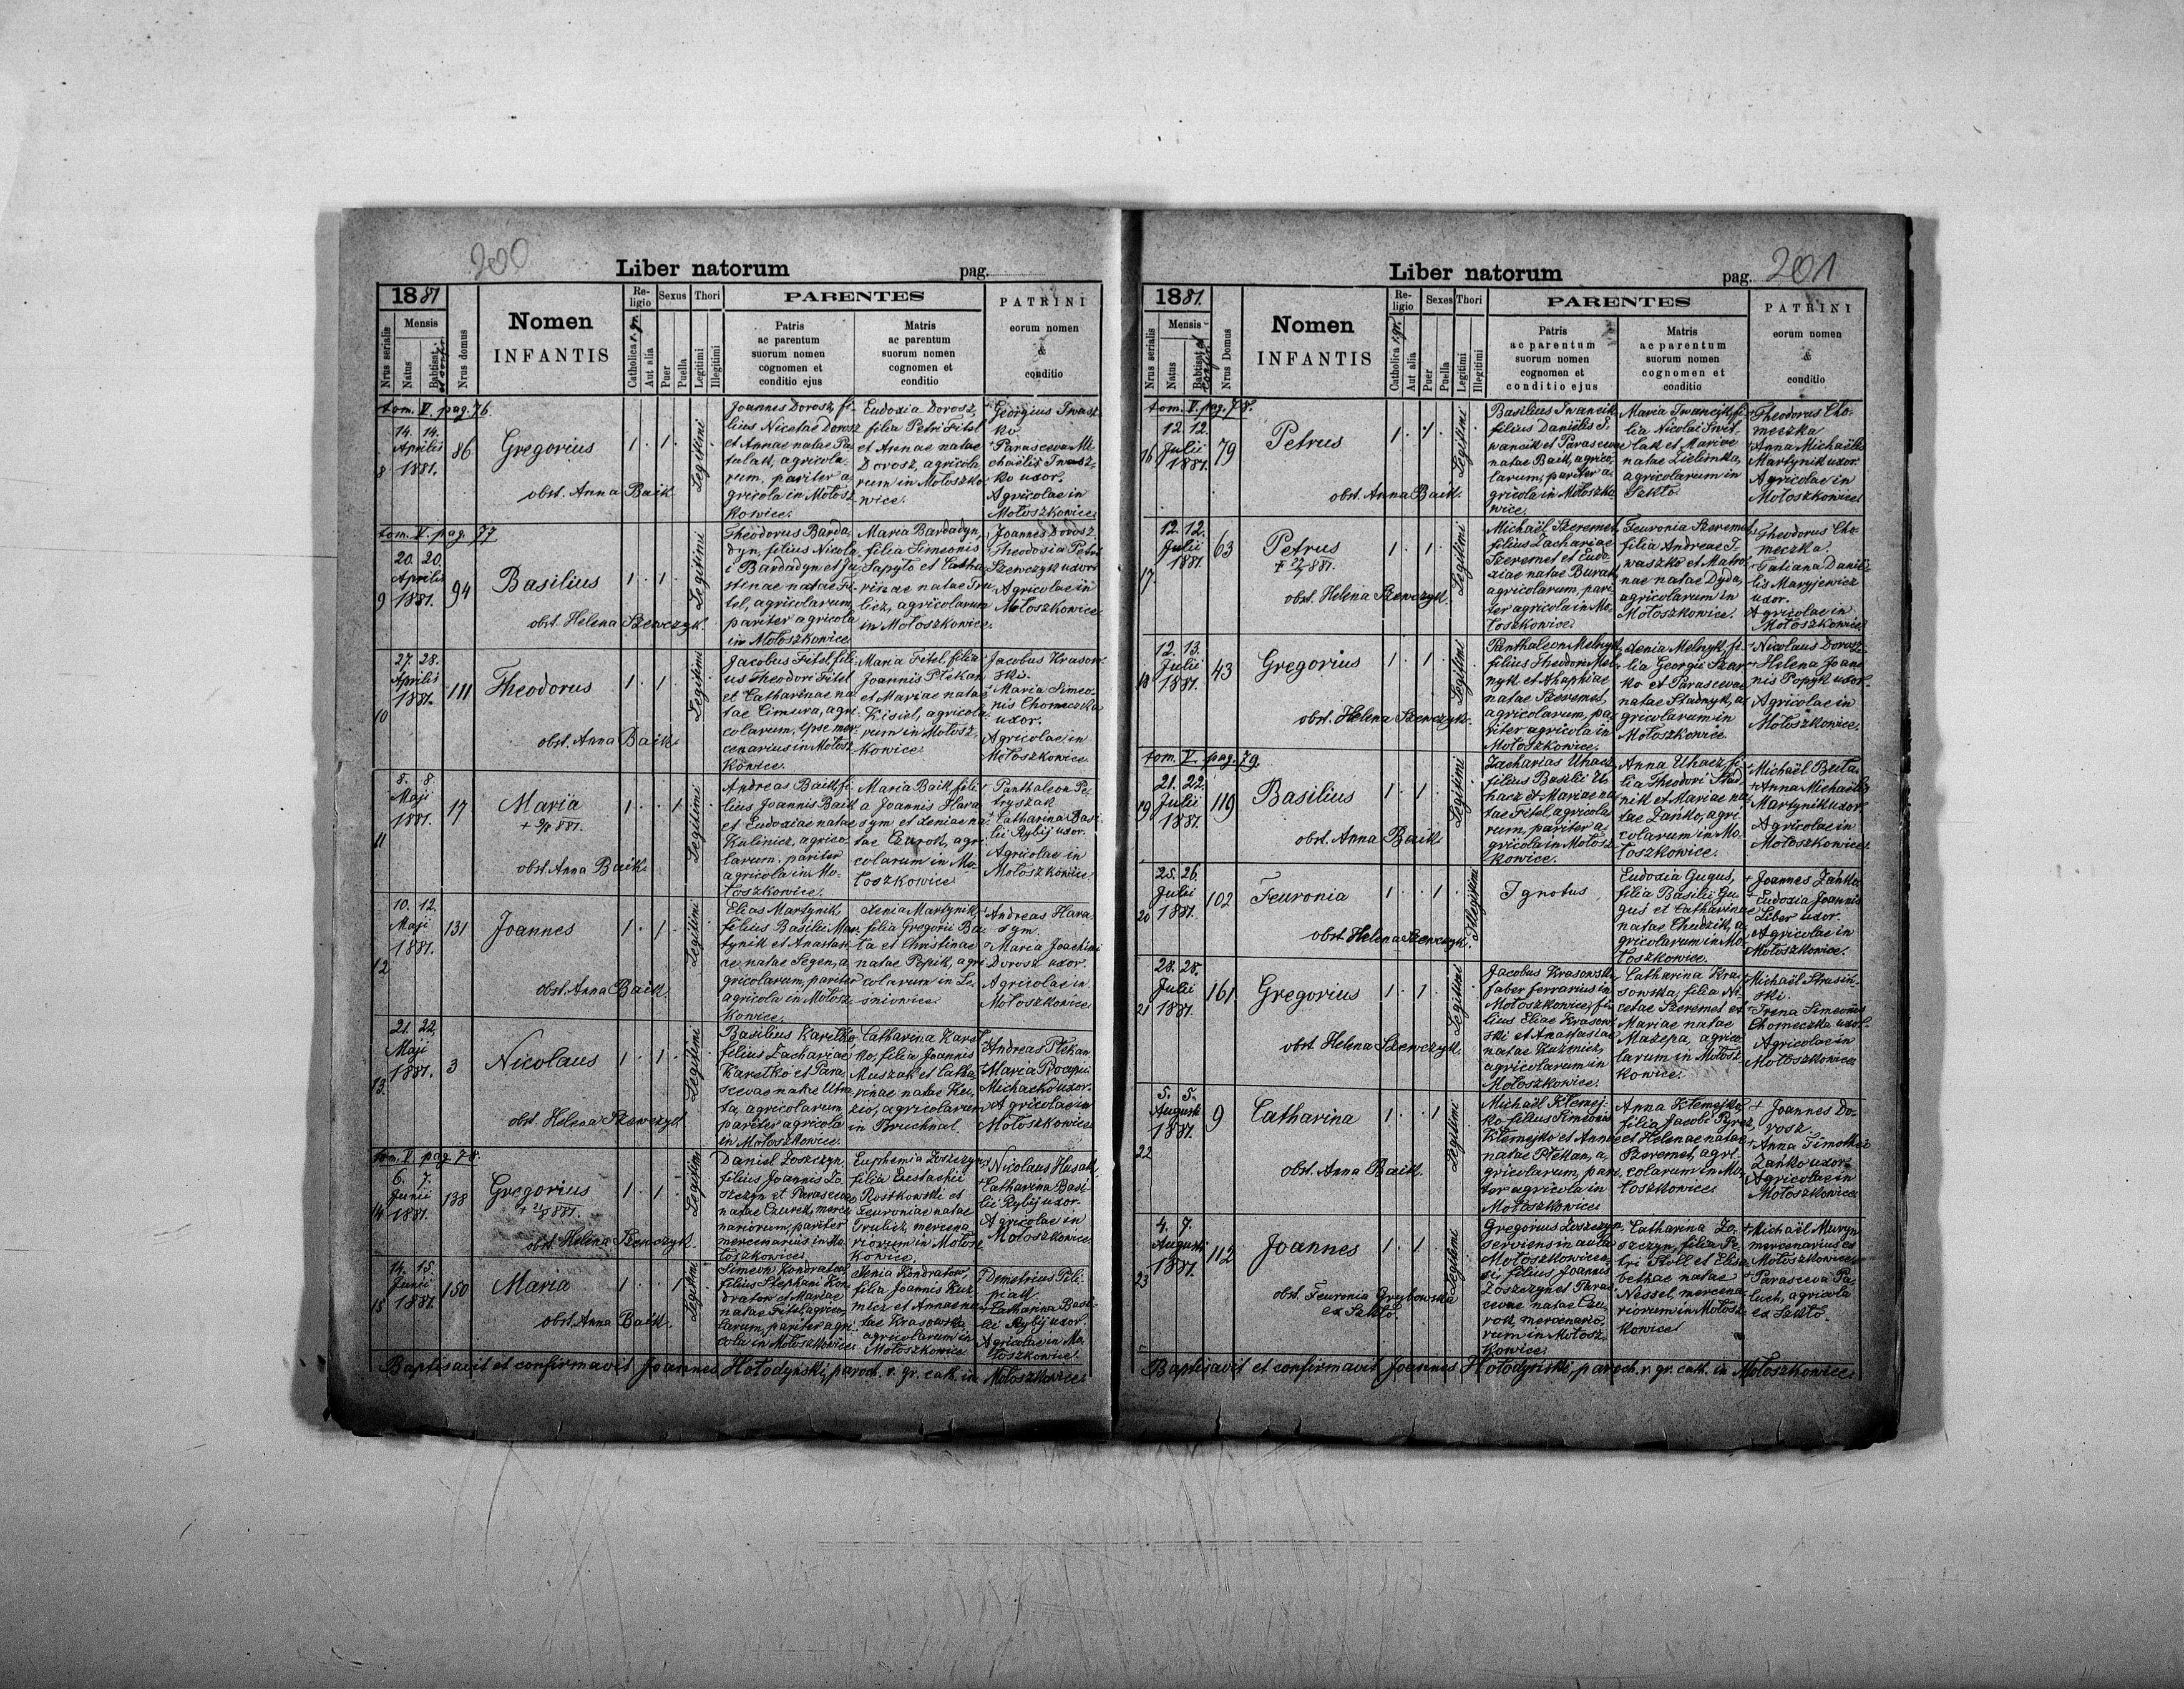 200
Liber natorum pag.
1881
Mensis
Nrus serialis
Natus
Babtisat.
Nrus domus
Nomen
INFANTIS
Religio
Catholica r. g.
Aut alia
Sexus
Puer
Puella
Thori
Legitimi
Illegitimi
PARENTES
Patris
ac parentum
suorum nomen
cognomen et
conditio ejus
Matris
ac parentum
suorum nomen
cognomen et
conditio
PATRINI
eorum nomen
&
conditio
tom. V. pag. 76.
8
14. 14.
Aprilis
1881.
86
Gregorius
obst. Anna Baik
1. 1.
Legitimi
Joannes Dorosz, fi-
lius Nicetae Dorosz
et Annae natae Pa-
tulak, agricola-
rum, pariter a-
gricola in Mołosz-
kowice.
Eudoxia Dorosz,
filia Petri Fitel
et Annae natae
Dorosz, agricola
rum in Mołoszko-
wice.
Georgius Iwasz-
ko
Parasceva Mi-
chaëlis Iwasz-
ko uxor.
Agricolae in
Mołoszkowice
tom. V. pag. 77
9
20. 20.
Aprilis
1881.
94
Basilius
obst. Helena Szewczyk.
1. 1.
Legitimi
Theodorus Barda-
dyn, filius Nicola-
i Bardadyn et Ju-
stinae natae Fi-
tel, agricolarum,
pariter agricola
in Mołoszkowice
Maria Bardadyn,
filia Simeonis
Sapyto et Catha-
rinae natae Tru-
licz, agricolarum
in Mołoszkowice.
Joannes Dorosz
Theodosia Petri
Szewczyk uxor.
Agricolae in
Mołoszkowice
10
27. 28.
Aprilis
1881.
111
Theodorus
obst. Anna Baik.
1. 1.
Legitimi
Jacobus Fitel, fili-
us Theodori Fitel
et Catharinae na-
tae Cimura, agri-
colarum. Ipse mer-
cenarius in Mołosz-
kowice.
Maria Fitel, filia
Joannis Płekan
et Mariae natae
Kisiel, agricola-
rum in Mołosz-
kowice.
Jacobus Krasow-
ski.
Maria Simeo-
nis Chomeczka
uxor.
Agricolae in
Mołoszkowice
11
8. 8.
Maji
1881.
17
Maria
obst. Anna Baik.
1. 1.
Legitimi
Andreas Baik, fi-
lius Joannis Baik
et Eudoxiae natae
Kulinicz, agrico-
larum, pariter
agricola in Mo-
łoszkowice.
Maria Baik fili-
a Joannis Hara-
sym et Xeniae na-
tae Czurok, agri-
colarum in Mo-
łoszkowice
Panthaleon Pe-
tryszak
Catharina Basi-
lii Rybij uxor.
Agricolae in
Mołoszkowice
12
10. 12.
Maji
1881.
131
Joannes
obst. Anna Baik
1. 1.
Legitimi
Elias Martynik,
filius Basilii Mar-
tynik et Anastasi-
ae natae Segen, a-
gricolarum, pariter
agricola in Mołosz-
kowice.
Xenia Martynik,
filia Gregorii Ba-
ta et Christinae
natae Popik, agri-
colarum in Le-
śniowice
Andreas Hara-
sym.
Maria Joachimi
Dorosz uxor.
Agricolae in
Mołoszkowice
13.
21. 22.
Maji
1881.
3
Nicolaus
obst. Helena Szewczyk
1. 1.
Legitimi
Basilius Karetko
filius Zachariae
Karetko et Para-
scevae natae
agricolarum,
pariter agricola
in Mołoszkowice.
Catharina Karet-
ko, filia Joannis
Muszak et Catha-
rinae natae
agricolarum
in Bruchnal.
Andreas Płekan
Maria Procopii
Michacko uxor.
Agricolae in
Mołoszkowice
tom. V. pag. 78.
14
6. 7.
Junii
1881.
138
Gregorius
obst. Helena Szewczyk.
1. 1.
Legitimi
Daniel Łoszczyn,
filius Joannis Ło-
szczyn et Parascevae
natae Czurok, merce-
nariorum, pariter
mercenarius in Mo-
łoszkowice
Euphemia Łoszczyn,
filia Eustachii
Rostkowski et
Feuroniae natae
Trulicz, mercena-
riorum in Mołosz-
kowice.
Nicolaus Husak
Catharina Basi-
lii Rybij uxor.
Agricolae in
Mołoszkowice
15
14. 15.
Junii
1881.
150
Maria
obst. Anna Baik.
1. 1
Legitimi
Simeon Kondratow
filius Stephani Kon-
dratow et Mariae
natae Fitel, agrico-
larum, pariter agri-
cola in Mołoszkowice
Xenia Kondratow,
filia Joannis Kuz-
micz et Annae na-
tae Krasowska,
agricolarum in
Mołoszkowice
Demetrius Pili-
piak
Catharina Basi-
lii Rybij uxor.
Agricolae in Mo-
łoszkowice
Baptisavit et confirmavit Joannes Hołodyński, paroch. r. gr. cath. in Mołoszkowice
Liber natorum pag. 201
1881.
Mensis
Nrus serialis
Natus
Babtisat
Nrus Domus
Nomen
INFANTIS
Religio
Catholica r. gr.
Aut alia
Sexes
Puer
Puella
Thori
Legitimi
Illegitimi
PARENTES
Patris
ac parentum
suorum nomen
cognomen et
conditio ejus
Matris
ac parentum
suorum nomen
cognomen et
conditio
PATRINI
eorum nomen
&
conditio
tom. V. pag. 78.
16
12. 12.
Julii
1881.
79
Petrus
obst. Anna Baik.
1. 1.
Legitimi
Basilius Iwancik
filius Daniëlis I-
wancik et Parascevae
natae Baik, agrico-
larum, pariter a-
gricola in Mołoszko-
wice.
Maria Iwancik, fi-
lia Nicolai Swit-
lak et Mariae
natae Zielinka,
agricolarum in
Szkło.
Theodorus Cho-
meczka
Anna Michaëlis
Martynik uxor.
Agricolae in
Mołoszkowice
17.
12. 12.
Julii
1881.
63
Petrus
obst. Helena Szewczyk.
1. 1.
Legitimi
Michaël Szeremet,
filius Zachariae
Szeremet et Eudo-
xiae natae Burak,
agricolarum, pari-
ter agricola in Mo-
łoszkowice.
Feuronia Szeremet,
filia Andreae I-
waszko et Matro-
nae natae Dyda,
agricolarum in
Mołoszkowice.
Theodorus Cho-
meczka.
Tatiana Danië-
lis Maryjewicz
uxor.
Agricolae in
Mołoszkowice
18
12. 13.
Julii
1881.
43
Gregorius
obst. Helena Szewczyk.
1. 1.
Legitimi
Panthaleon Melnyk,
filius Theodori Mel-
nyk et Ahaphiae
natae Szeremet,
agricolarum, pa-
riter agricola in
Mołoszkowice.
Xenia Melnyk, fi-
lia Georgii Szar-
ko et Parascevae
natae Stadnyk, a-
gricolarum in
Mołoszkowice
Nicolaus Dorosz
Helena Joan-
nis Popyk uxor.
Agricolae in
Mołoszkowice
tom. V. pag. 79.
19
21. 22.
Julii
1881.
119
Basilius
obst. Anna Baik.
1. 1.
Legitimi
Zacharias Uhacz,
filius Basilii U-
hacz et Mariae na-
tae Fitel, agricola-
rum, pariter a-
gricola in Mołosz-
kowice.
Anna Uhacz, fi-
lia Theodori Stad-
nik et Mariae na-
tae Zańko, agri-
colarum in Mo-
łoszkowice.
Michaël Buta.
Anna Michaëlis
Martynik uxor
Agricolae in
Mołoszkowice
20
25. 26.
Julii
1881.
102
Feuronia
obst. Helena Szewczyk.
1. 1.
Illegitimi
Ignotus
Eudoxia Gugus,
filia Basilii Gu-
gus et Catharinae
natae Chudzik, a-
gricolarum in Mo-
łoszkowice.
Joannes Zańko.
Eudoxia Joannis
Liber uxor.
Agricolae in
Mołoszkowice.
21
28. 28.
Julii
1881.
161
Gregorius
obst. Helena Szewczyk.
1. 1.
Legitimi
Jacobus Krasowski,
faber ferrarius in
Mołoszkowice, fi-
lius Eliae Krasow-
ski et Anastasiae
natae Kuzmicz,
agricolarum in
Mołoszkowice.
Catharina Kra-
sowska, filia Ni-
cetae Szeremet et
Mariae natae
Mazepa, agrico-
larum in Mołosz-
kowice.
Michaël Strusin-
ski.
Irena Simeonis
Chomeczka uxor.
Agricolae in
Mołoszkowice
22
5. 5.
Augusti
1881.
9
Catharina
obst. Anna Baik.
1. 1
Legitimi
Michaël Kłemej-
ko filius Simeonis
Kłemejko et Annae
natae Płekan, a-
gricolarum, pari-
ter agricola in
Mołoszkowice
Anna Kłemejko,
filia Jacobi Pyroz,
et Helenae natae
Szeremet, agri-
colarum in Mo-
łoszkowice
Joannes Do-
rosz.
Anna Timothei
Zańko uxor.
Agricolae in
Mołoszkowice
23
4. 7.
Augusti
1881.
112
Joannes
obst. Feuronia Grybowska
ex Szkło.
1. 1.
Legitimi
Gregorius Łoszczyn,
serviens in aula
Mołoszkowicen-
si filius Joannis
Łoszczyn et Paras-
cevae natae Czu-
rok, mercenario-
rum in Mołosz-
kowice.
Catharina Ło-
szczyn, filia Pe-
tri Stoll et Elisa-
bethae natae
Nessel, mercena-
riorum in Mołosz-
kowice
Michaël Maryn
mercenarius ex
Mołoszkowice.
Parasceva Pa-
luch, agricola
ex Szkło.
Baptisavit et confirmavit Joannes Hołodyński, paroch. r. gr. cath. in Mołoszkowice